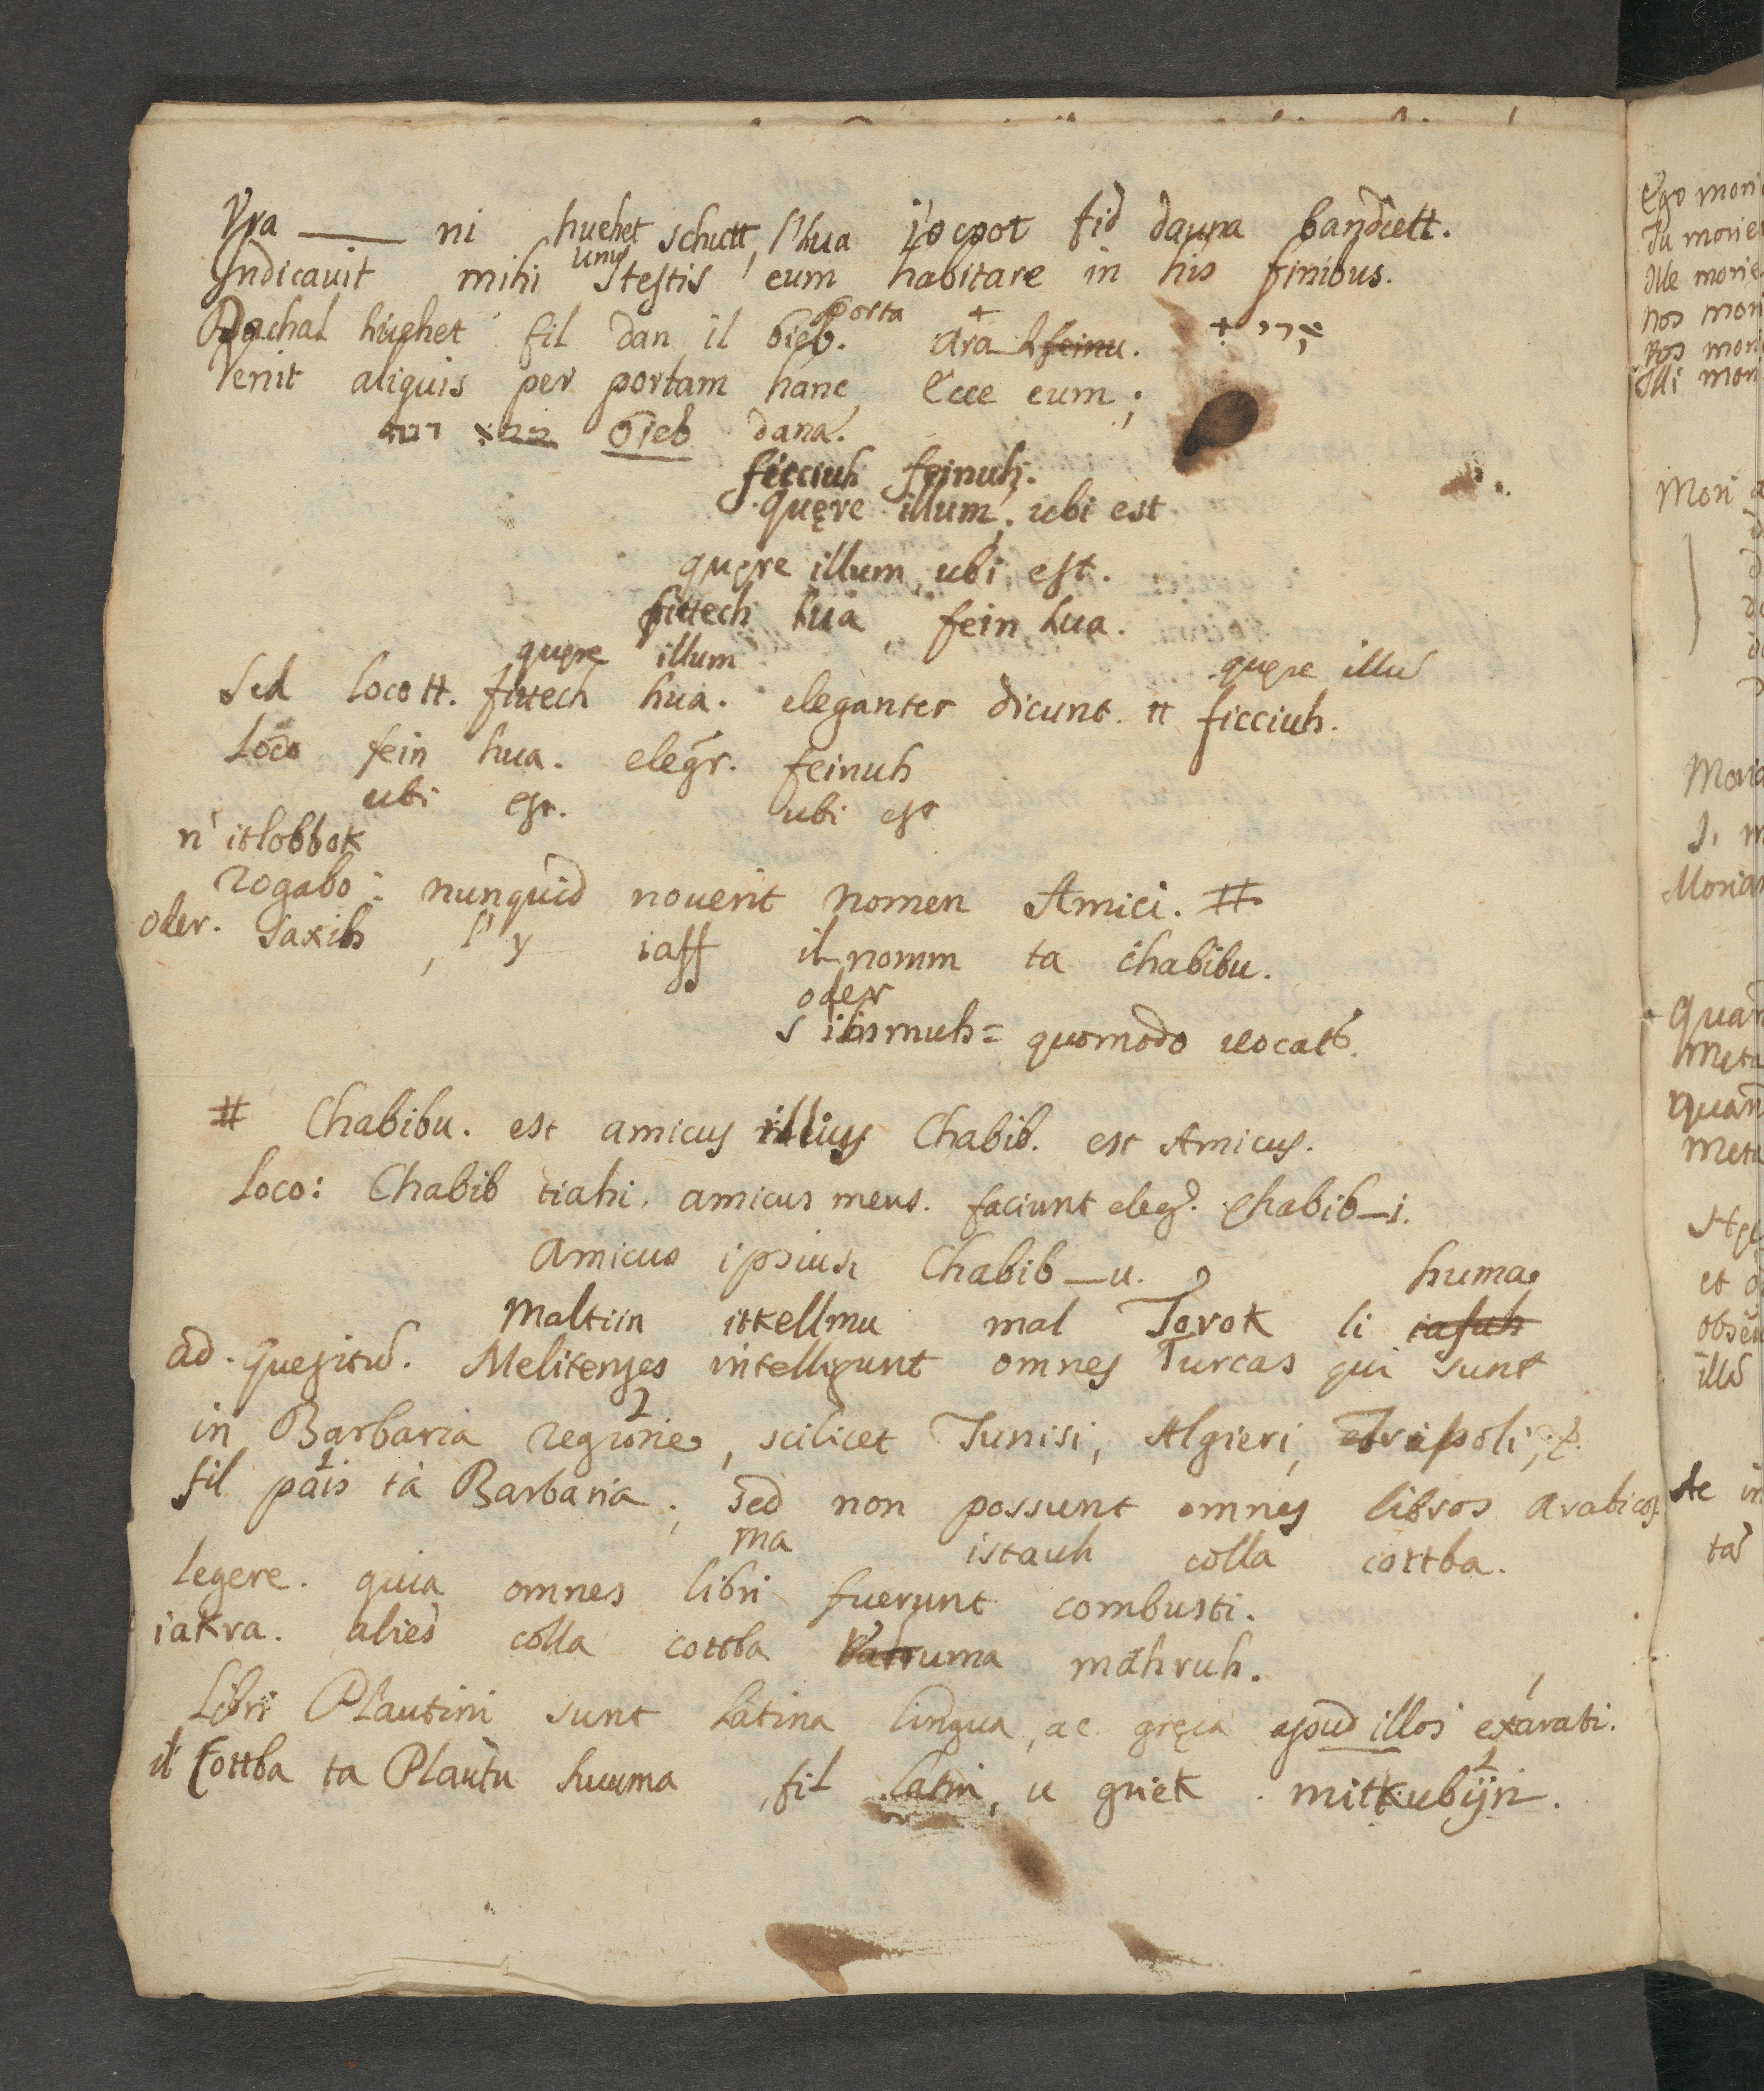 Vra —— ni huehet schutt, l'hua jocpot fid dauna bandiett.
unus
Indicauit mihi testis eum habitare in his finibus.
porta
Dachal huehet fil dan il bieb. ara feinu.
Venit aliquis per portam hanc, Ecce eum;
bieb dana.
ficciuh feinuh.
quęre illum, ubi est
quęre illum, ubi est.
fittech hua, fein hua.
quęre illum quęre illū
Sed loco tt. fittech hua. eleganter dicunt. tt ficciuh.
Loco fein hua. elegr. feinuh
ubi est. ubi est
n' itlobbok
rogabo: nunquid nouerit nomen Amici. #
oder. saxib, l' y iaff il nomm ta chabibu.
oder
ismuh = quomodo uocat.
# Chabibu. est amicus illius Chabib. est Amicus.
Loco: Chabib tiahi. amicus meus. faciunt eleg. Chabib—i.
Amicus ipsius Chabib—u.
huma
Maltiin itkellmu mal Torok li iafuh
ad. quęsitū. Melitenses intelligunt omnes Turcas qui sunt
in Barbaria regione, scilicet Tunisi, Algieri, Tripoli,
fil pais ta Barbaria; sed non possunt omnes libros arabicos
ma istauh colla cottba.
legere. quia omnes libri fuerunt combusti.
iakra. alied colla cottba huma mahruh.
Libri Plautini sunt Latina lingua, ac gręca apud illos exarati.
il Cottba ta Plautu huuma, fil latin, u griek. mitkubijn.
Ego mori
Tu morie
Ille morie
Nos mori
Vos mori
Illi mori
Mori